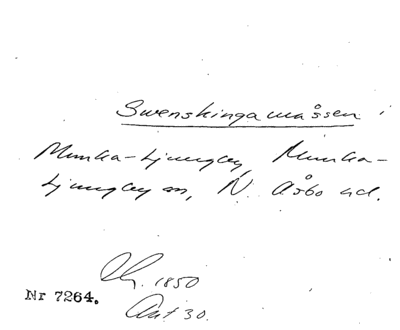 Swenskingamåssen
Munka-Ljungby, Munka-
Ljungby sn, N. Åsbo hd.
1850
Nr 7264.
Ant 30.